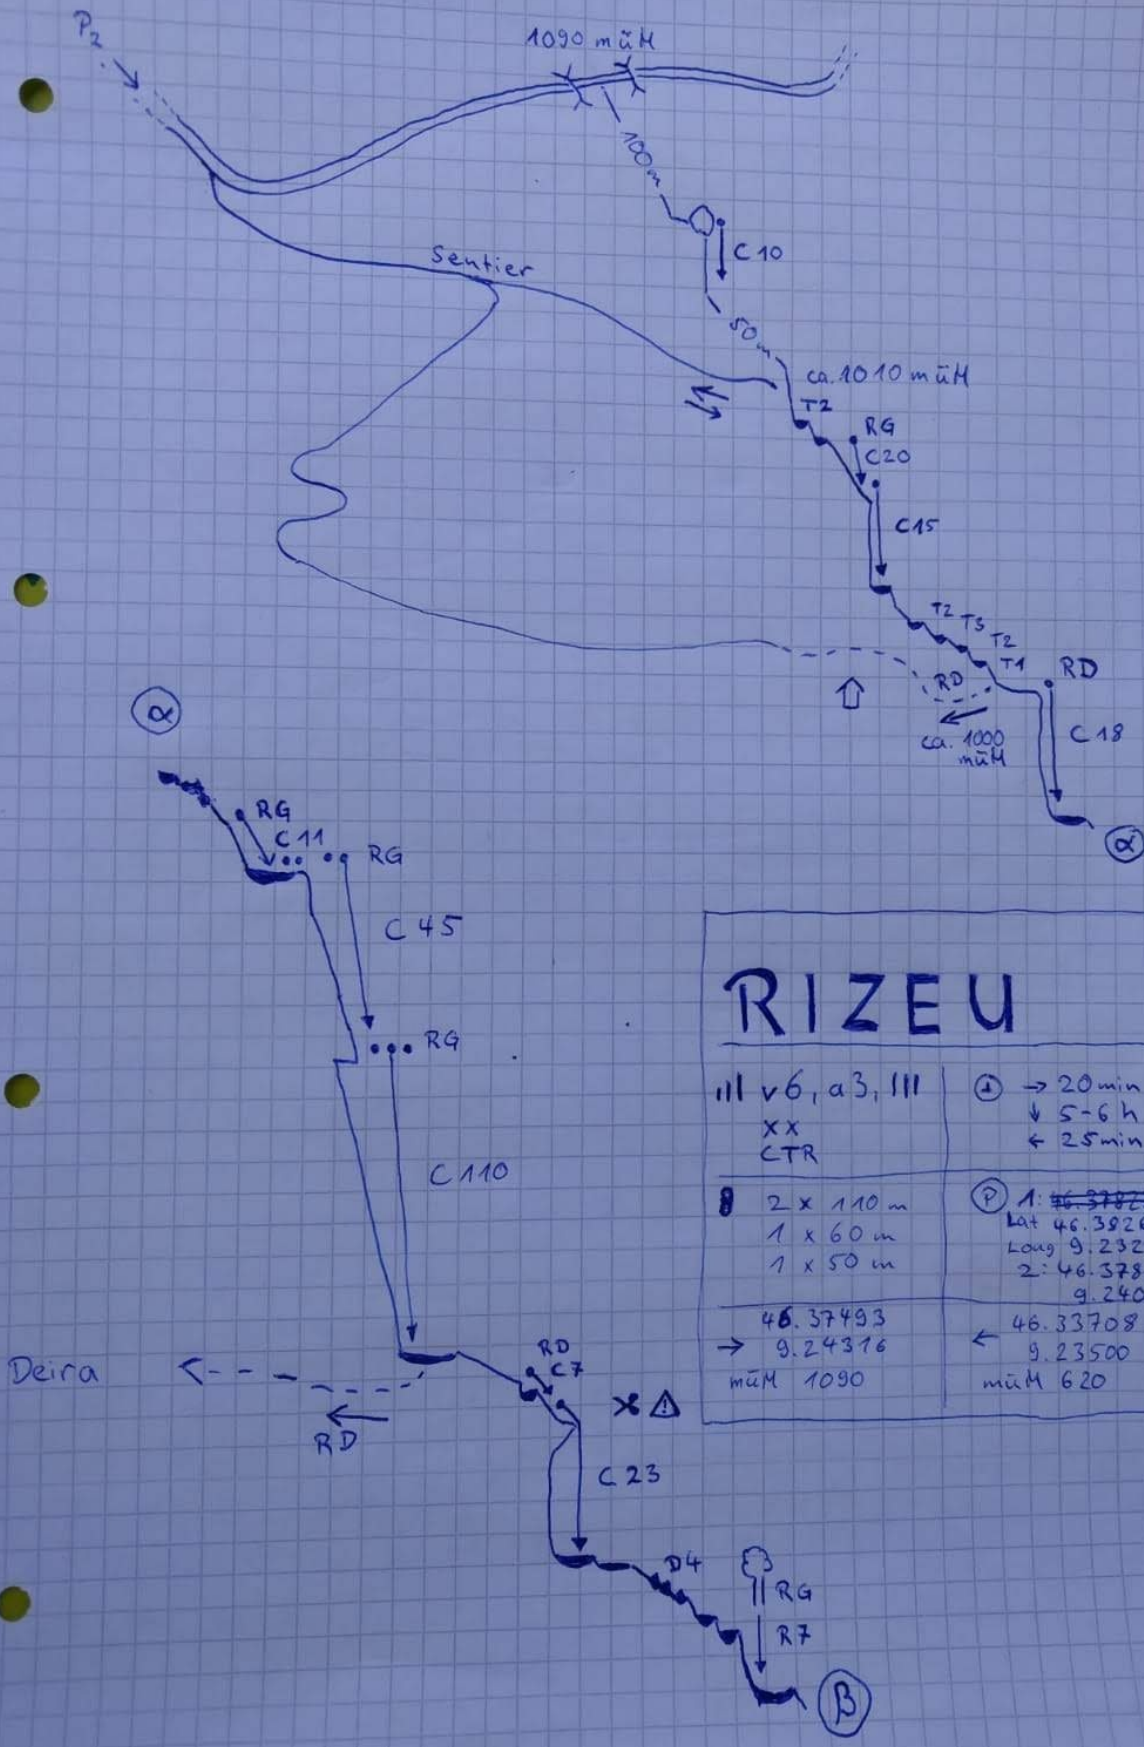 P2
1090 müM
100m
C 10
Sentier
50m
ca. 1010 müM
T2
RG
C20
C15
T2
T3
T2
T1
RD
RD
ca. 1000
müM
C 18
α
α
RG
C 11
RG
C 45
RG
C 110
RIZEU
v6, a3, III
xx
CTR
→ 20min
↓ 5-6 h
← 25min
2 x 110 m
1 x 60 m
1 x 50 m
P 1:
Lat 46.382
Long 9.232
2: 46.378
9.240
46.37493
→ 9.24316
müM 1090
46.33708
← 9.23500
müM 620
Deira
RD
RD
C7
C 23
D4
RG
R7
β